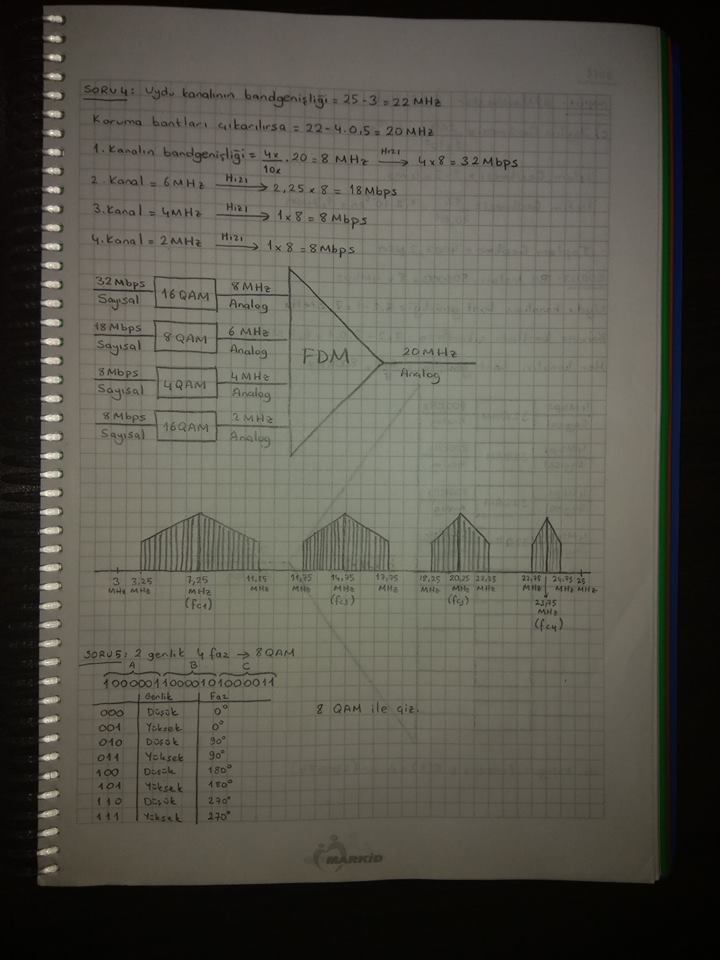 SORU 4: Uydu kanalının bandgenişliği = 25-3 = 22 MHz
Koruma bantları çıkarılırsa = 22-4.0,5 = 20 MHz
1. Kanalın bandgenişliği = 4x/10x . 20 = 8 MHz Hızı → 4x8 = 32 Mbps
2. Kanal = 6MHz Hızı → 2,25 x 8 = 18Mbps
3. Kanal = 4MHz Hızı → 1x8 = 8Mbps
4. Kanal = 2MHz Hızı → 1x8 = 8Mbps
32Mbps Sayısal 16QAM 8MHz Analog
18Mbps Sayısal 8QAM 6 MHz Analog
FDM 20MHz Analog
8Mbps Sayısal 4QAM 4MHz Analog
8Mbps Sayısal 16QAM 2MHz Analog
3 MHz 3,25 MHz 7,25 MHz (fc1) 11,25 MHz 11,75 MHz 14,75 MHz (fc3) 17,75 MHz 18,25 MHz 20,25 MHz (fc3) 22,25 MHz 22,75 MHz 23,75 MHz (fc4) 24,75 MHz 25 MHz
SORU 5: 2 genlik 4 faz → 8QAM
A B C
10000110000101000011
Genlik Faz
000 Düşük 0°
8 QAM ile çiz.
001 Yüksek 0°
010 Düşük 90°
011 Yüksek 90°
100 Düşük 180°
101 Yüksek 180°
110 Düşük 270°
111 Yüksek 270°
MARKİD